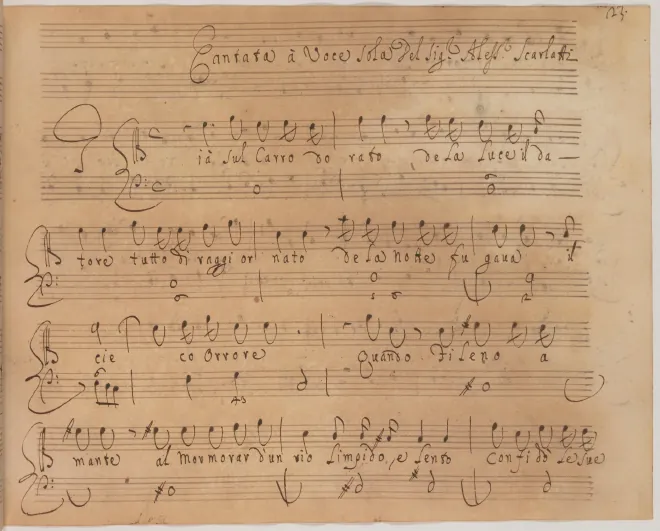 123
Cantata à Voce Sola Del Sig.r Aless.o Scarlatti
Già Sul Carro do rato de La Luce il da—
tore tutto di raggi or nato de La Notte fu gaua il
cie co Orrore Quando Fileno a
mante al Mormorar d'un rio Limpido, e Lento Confi dò Le Sue